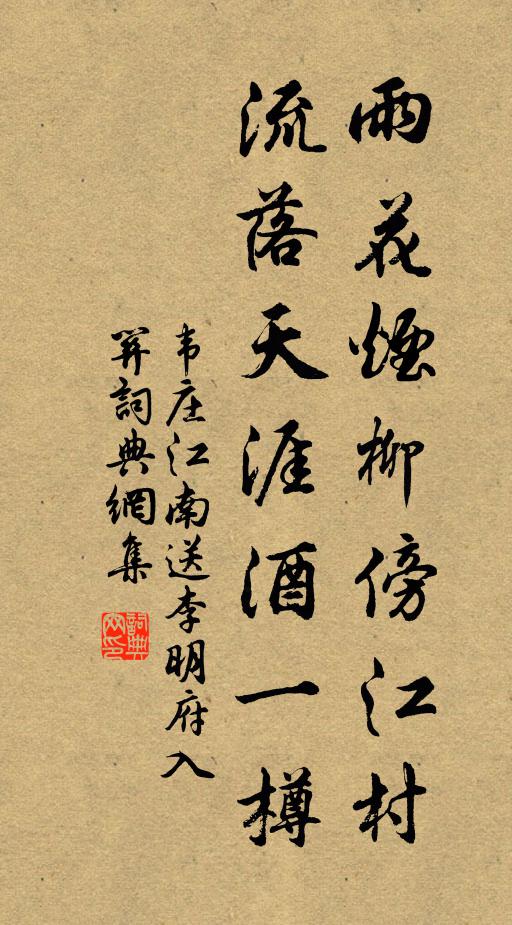 雨花煙柳傍江村
流落天涯酒一樽
韦庄江南送李明府入
關詞典網集
詞典网印